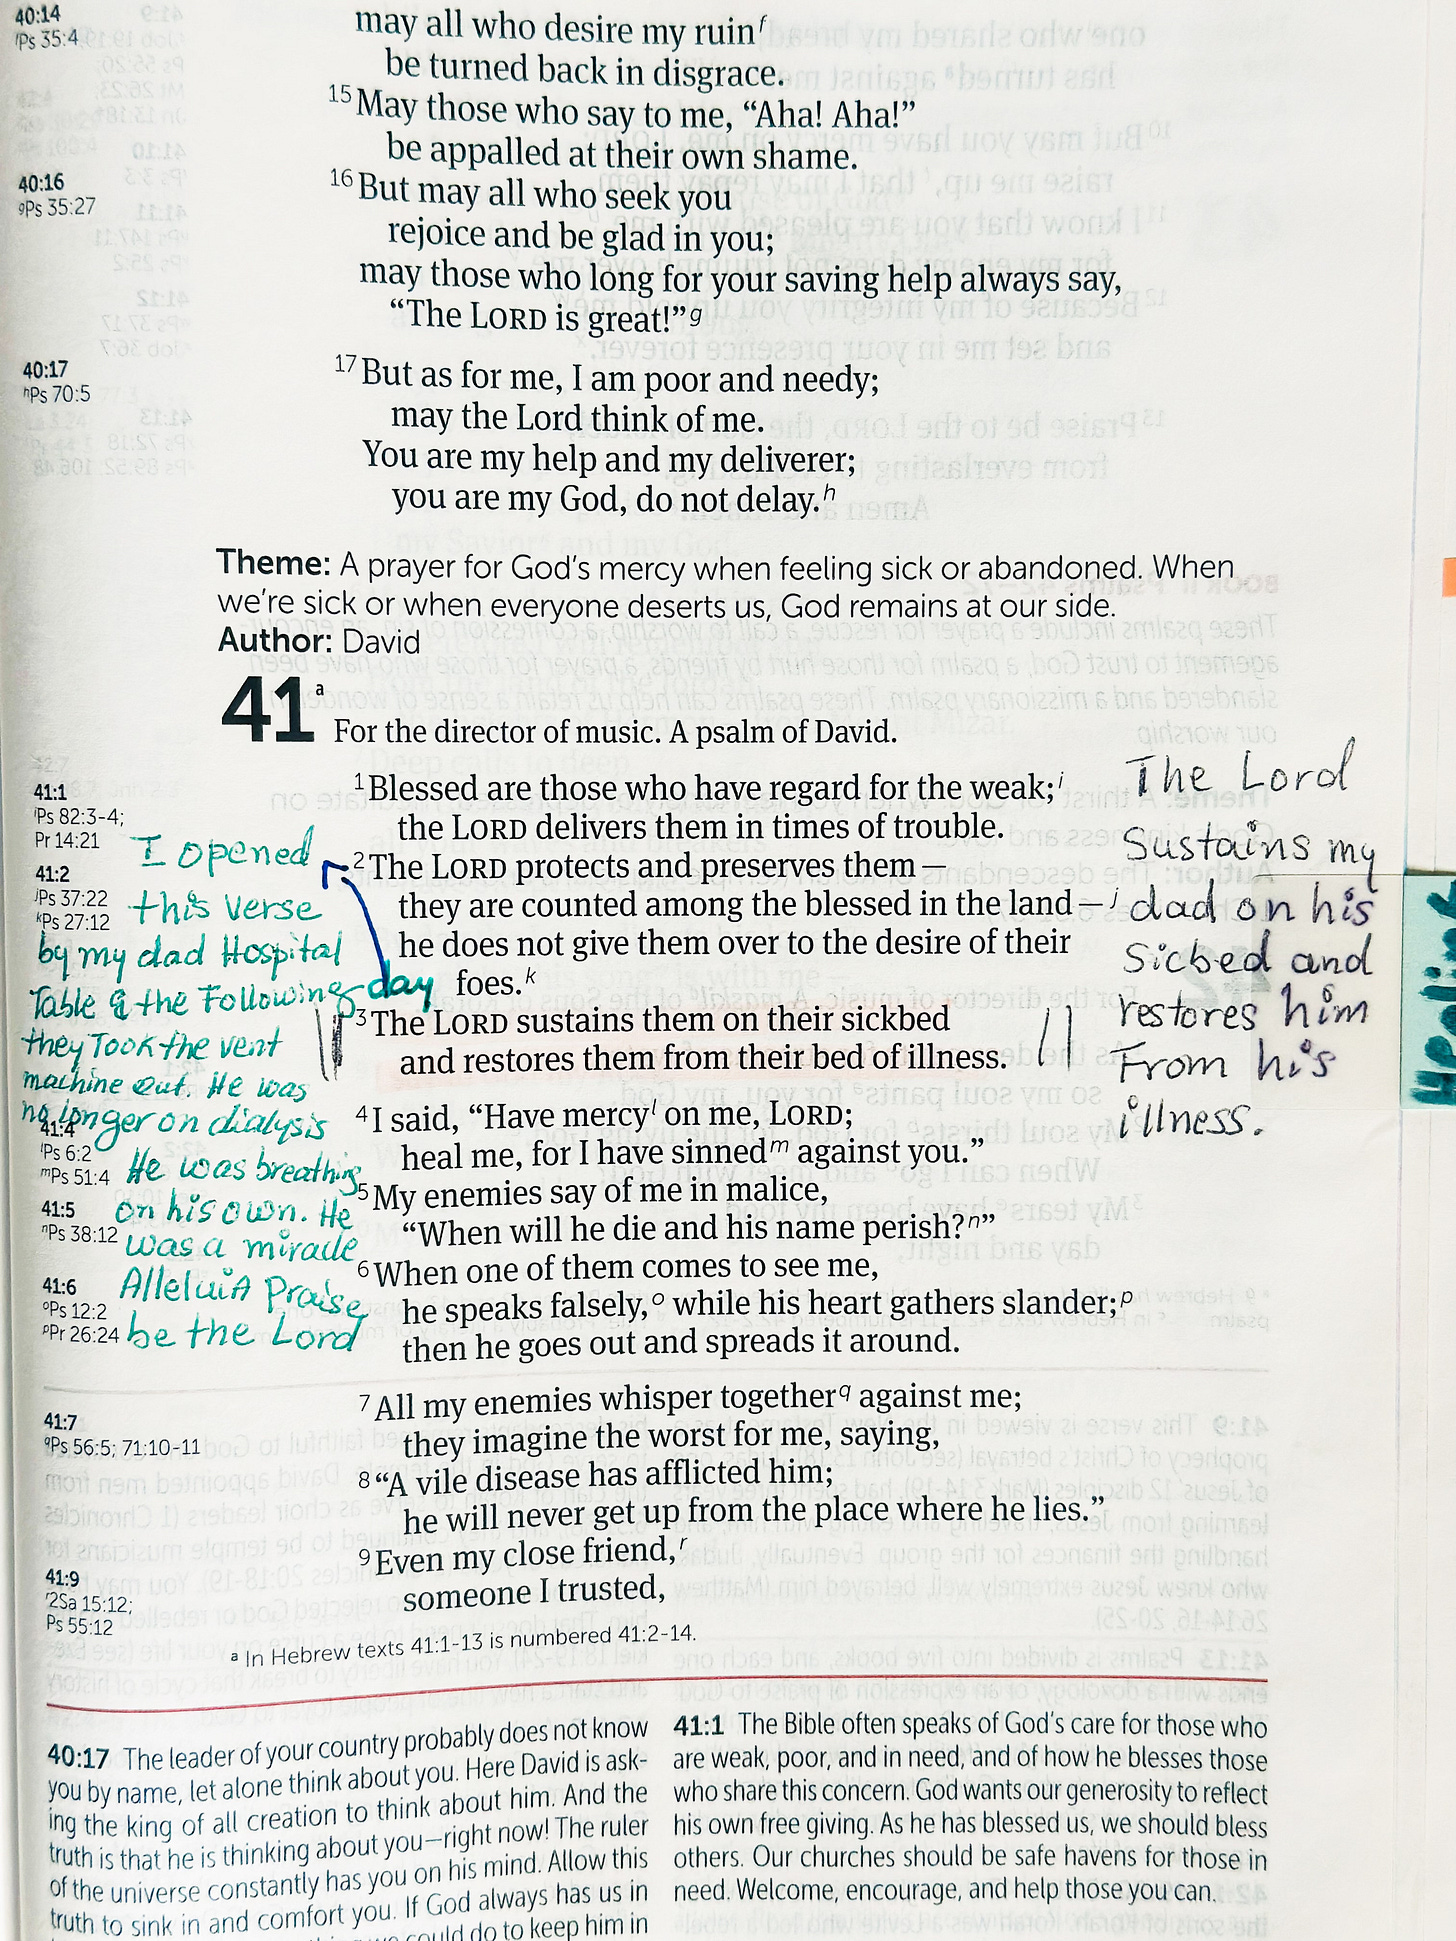 40:14
fPs 35:4
may all who desire my ruinf
be turned back in disgrace.
15 May those who say to me, “Aha! Aha!”
be appalled at their own shame.
40:16
gPs 35:27
16 But may all who seek you
rejoice and be glad in you;
may those who long for your saving help always say,
“The LORD is great!”g
40:17
hPs 70:5
17 But as for me, I am poor and needy;
may the Lord think of me.
You are my help and my deliverer;
you are my God, do not delay.h
Theme: A prayer for God’s mercy when feeling sick or abandoned. When
we’re sick or when everyone deserts us, God remains at our side.
Author: David
41a
For the director of music. A psalm of David.
41:1
iPs 82:3-4;
Pr 14:21
41:2
jPs 37:22
kPs 27:12
1 Blessed are those who have regard for the weak;i
the LORD delivers them in times of trouble.
2 The LORD protects and preserves them—
they are counted among the blessed in the land—j
he does not give them over to the desire of their
foes.k
3 The LORD sustains them on their sickbed
and restores them from their bed of illness.
4 I said, “Have mercyl on me, LORD;
heal me, for I have sinnedm against you.”
5 My enemies say of me in malice,
“When will he die and his name perish?n”
6 When one of them comes to see me,
he speaks falsely,o while his heart gathers slander;p
then he goes out and spreads it around.
I opened
this verse
by my dad Hospital
Table & the Following day
they Took the vent
machine out. He was
no longer on dialysis
He was breathing
on his own. He
was a miracle
AlleluiA Praise
be the Lord
The Lord
Sustains my
dad on his
Sicbed and
restores him
From his
illness.
Healing
41:4
lPs 6:2
mPs 51:4
41:5
nPs 38:12
41:6
oPs 12:2
pPr 26:24
41:7
qPs 56:5; 71:10-11
7 All my enemies whisper togetherq against me;
they imagine the worst for me, saying,
8 “A vile disease has afflicted him;
he will never get up from the place where he lies.”
9 Even my close friend,r
someone I trusted,
41:9
r2Sa 15:12;
Ps 55:12
a In Hebrew texts 41:1-13 is numbered 41:2-14.
40:17 The leader of your country probably does not know
you by name, let alone think about you. Here David is ask-
ing the king of all creation to think about him. And the
truth is that he is thinking about you—right now! The ruler
of the universe constantly has you on his mind. Allow this
truth to sink in and comfort you. If God always has us in
could do to keep him in
41:1 The Bible often speaks of God’s care for those who
are weak, poor, and in need, and of how he blesses those
who share this concern. God wants our generosity to reflect
his own free giving. As he has blessed us, we should bless
others. Our churches should be safe havens for those in
need. Welcome, encourage, and help those you can.